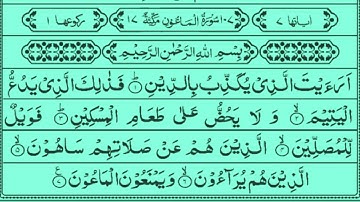 اٰیاتها ٧ ١٠٧ سُوْرَةُ الْمَاعُوْنِ مَكِّيَّةٌ ١٧ رکوعها ١
بِسْمِ اللهِ الرَّحْمٰنِ الرَّحِيْمِ
اَرَءَيْتَ الَّذِىْ يُكَذِّبُ بِالدِّيْنِ ۝١ فَذٰلِكَ الَّذِىْ يَدُعُّ
الْيَتِيْمَ ۝٢ وَ لَا يَحُضُّ عَلٰى طَعَامِ الْمِسْكِيْنِ ۝٣ فَوَيْلٌ
لِّلْمُصَلِّيْنَ ۝٤ الَّذِيْنَ هُمْ عَنْ صَلَاتِهِمْ سَاهُوْنَ ۝٥
الَّذِيْنَ هُمْ يُرَآءُوْنَ ۝٦ وَيَمْنَعُوْنَ الْمَاعُوْنَ ۝٧